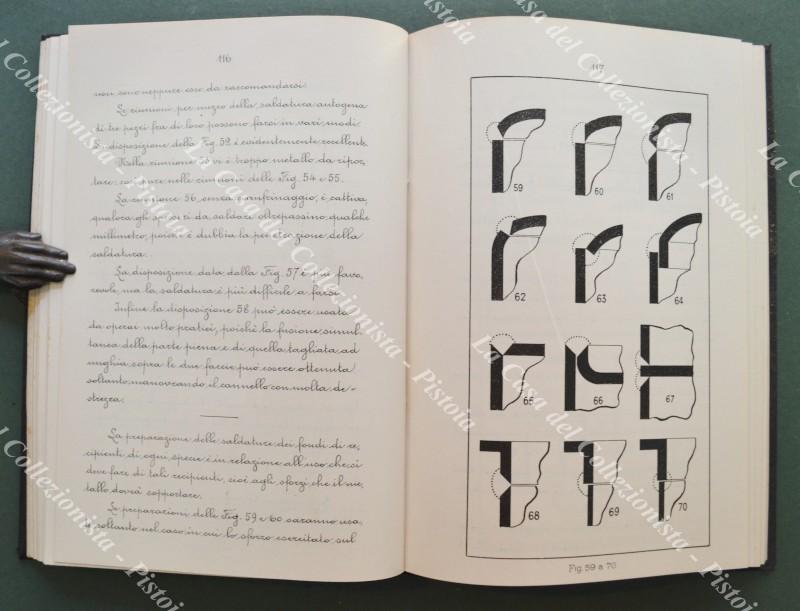 116
non sono neppure esse da raccomandarsi.
Le riunioni per mezzo della saldatura autogena
di tre pezzi fra di loro possono farsi in vari modi.
La disposizione della Fig. 52 è evidentemente eccellente.
Nella riunione 53 vi è troppo metallo da ripor-
tare: così pure nelle riunioni delle Fig. 54 e 55.
La riunione 56, senza è cattiva,
qualora gli spessori da saldare oltrepassino qualche
millimetro, poichè è dubbia la penetrazione della
saldatura.
La disposizione data dalla Fig. 57 è più favo-
revole, ma la saldatura è più difficile a farsi.
Infine la disposizione 58 può essere usata
da operai molto pratici, poichè la fusione simul-
tanea della parte piena e di quella tagliata ad
unghia sopra le due faccie può essere ottenuta
soltanto manovrando il cannello con molta de-
strezza.
La preparazione delle saldature dei fondi di re-
cipienti di ogni specie è in relazione all'uso che si
deve fare di tali recipienti, cioè agli sforzi che il me-
tallo dovrà sopportare.
Le preparazioni delle Fig. 59 e 60 saranno usa-
te soltanto nel caso in cui lo sforzo esercitato sul
117
59 60 61
62 63 64
65 66 67
68 69 70
Fig. 59 a 70
La Casa del Collezionista - Pistoia